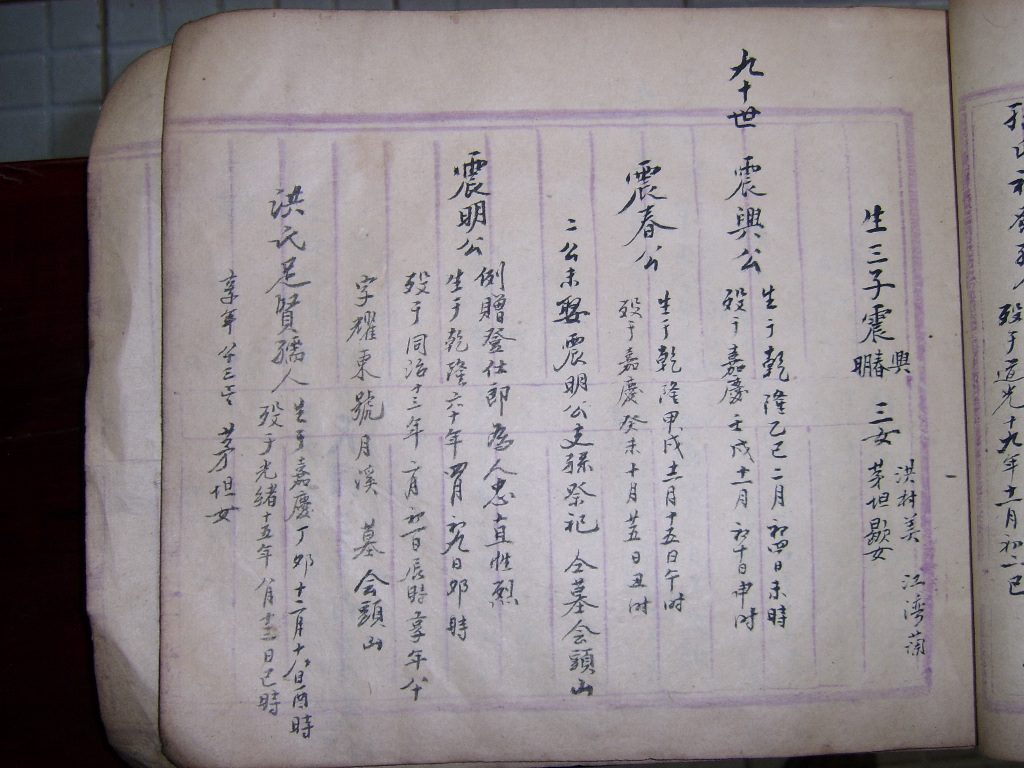 孫氏
殁于道光十九年十一月初一巳
生三子震興春明 三女 洪村美 茅坦歇女 江湾蘭
九十世
震興公
生于乾隆乙巳二月初四日未時
殁于嘉慶壬戌十一月初十日申时
震春公
生于乾隆甲戌十一月十五日午时
殁于嘉慶癸未十月廿五日丑时
二公未娶震明公支孫祭祀 仝墓会頭山
震明公
例贈登仕郎為人忠直性烈
生于乾隆六十年四月初九日卯時
殁于同治十三年二月初一日辰時享年八十
字耀東號月溪 墓会頭山
洪氏足賢孺人
生于嘉慶丁卯十二月十八日酉時
殁于光緒十五年八月十三日巳時
享年八十三 茅坦女